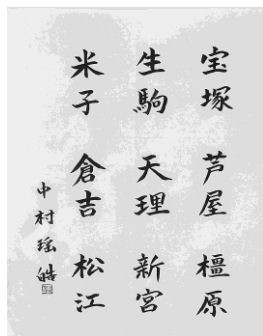 宝塚 芦屋 橿原
生駒 天理 新宮
米子 倉吉 松江
中村瑶皓